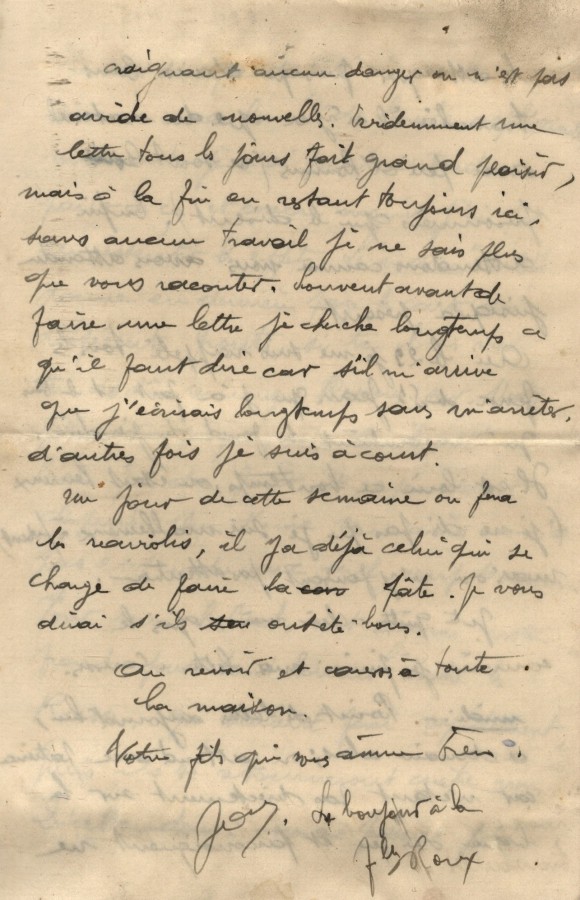 craignant aucun danger on n'est pas
avide de nouvelles. Evidemment une
lettre tous ls jours fait grand plaisir,
mais à la fin en restant toujours ici,
sans aucun travail je ne sais plus
que vous raconter. Souvent avant de
faire une lettre je cherche longtemps ce
qu'il faut dire car s'il m'arrive
que j'écrirais longtemps sans m'arrêter,
d'autres fois je suis à court.
Un jour de cette semaine on fera
ls raviolis, il y a déjà celui qui se
charge de faire la pâte. Je vous
dirai s'ils ont été bons.
Au revoir et à toute
la maison.
Votre fils qui vous aime bien.
Le bonjour à la
flle Roux